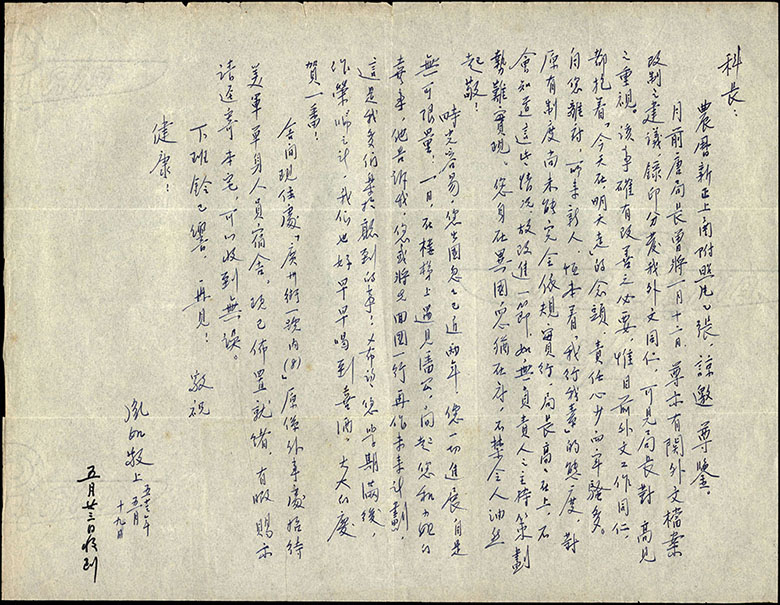 科長：
農曆新正上函附照片乙張諒邀尊鑒，
月前唐局長曾將一月十二日尊示有関外文檔案
改制之建議錄印分發我外文同仁，可見局長對高見
之重視。該事確有改善之必要，惟目前外文工作同仁
都抱着「今天在，明天走」的念頭，責任心少而牢騷多。
自您離府，所来新人，恒本着「我行我素」的態度，對
原有制度尚未能完全依規實行，局長高高在上，不
會知道這些情况故改進一節，如無負責人之主持策劃
勢難實現。您身在異國，心猶在府，不禁令人油然
起敬！
時光容易，您出國忽忽已近兩年，您一切進展自是
無可限量，一日，在樓梯上遇見潘公，问起您和
喜事，他告訴我，您或將先回國一行再作未来計劃，
這是我多么樂於聽到的事！希望您学期滿後，
作榮歸之計，我们也好早早喝到喜酒，大大慶
賀一番！
舍间現住處「廣州街一號内(8)」原係外事處招待
美軍單身人員宿舍，现已佈置就緒，有暇賜示
請逕寄本宅，可以收到無誤。
下班鈴已響，再見！敬祝
健康！
敬上
五十三年
五月
十九日
五月廿三日收到